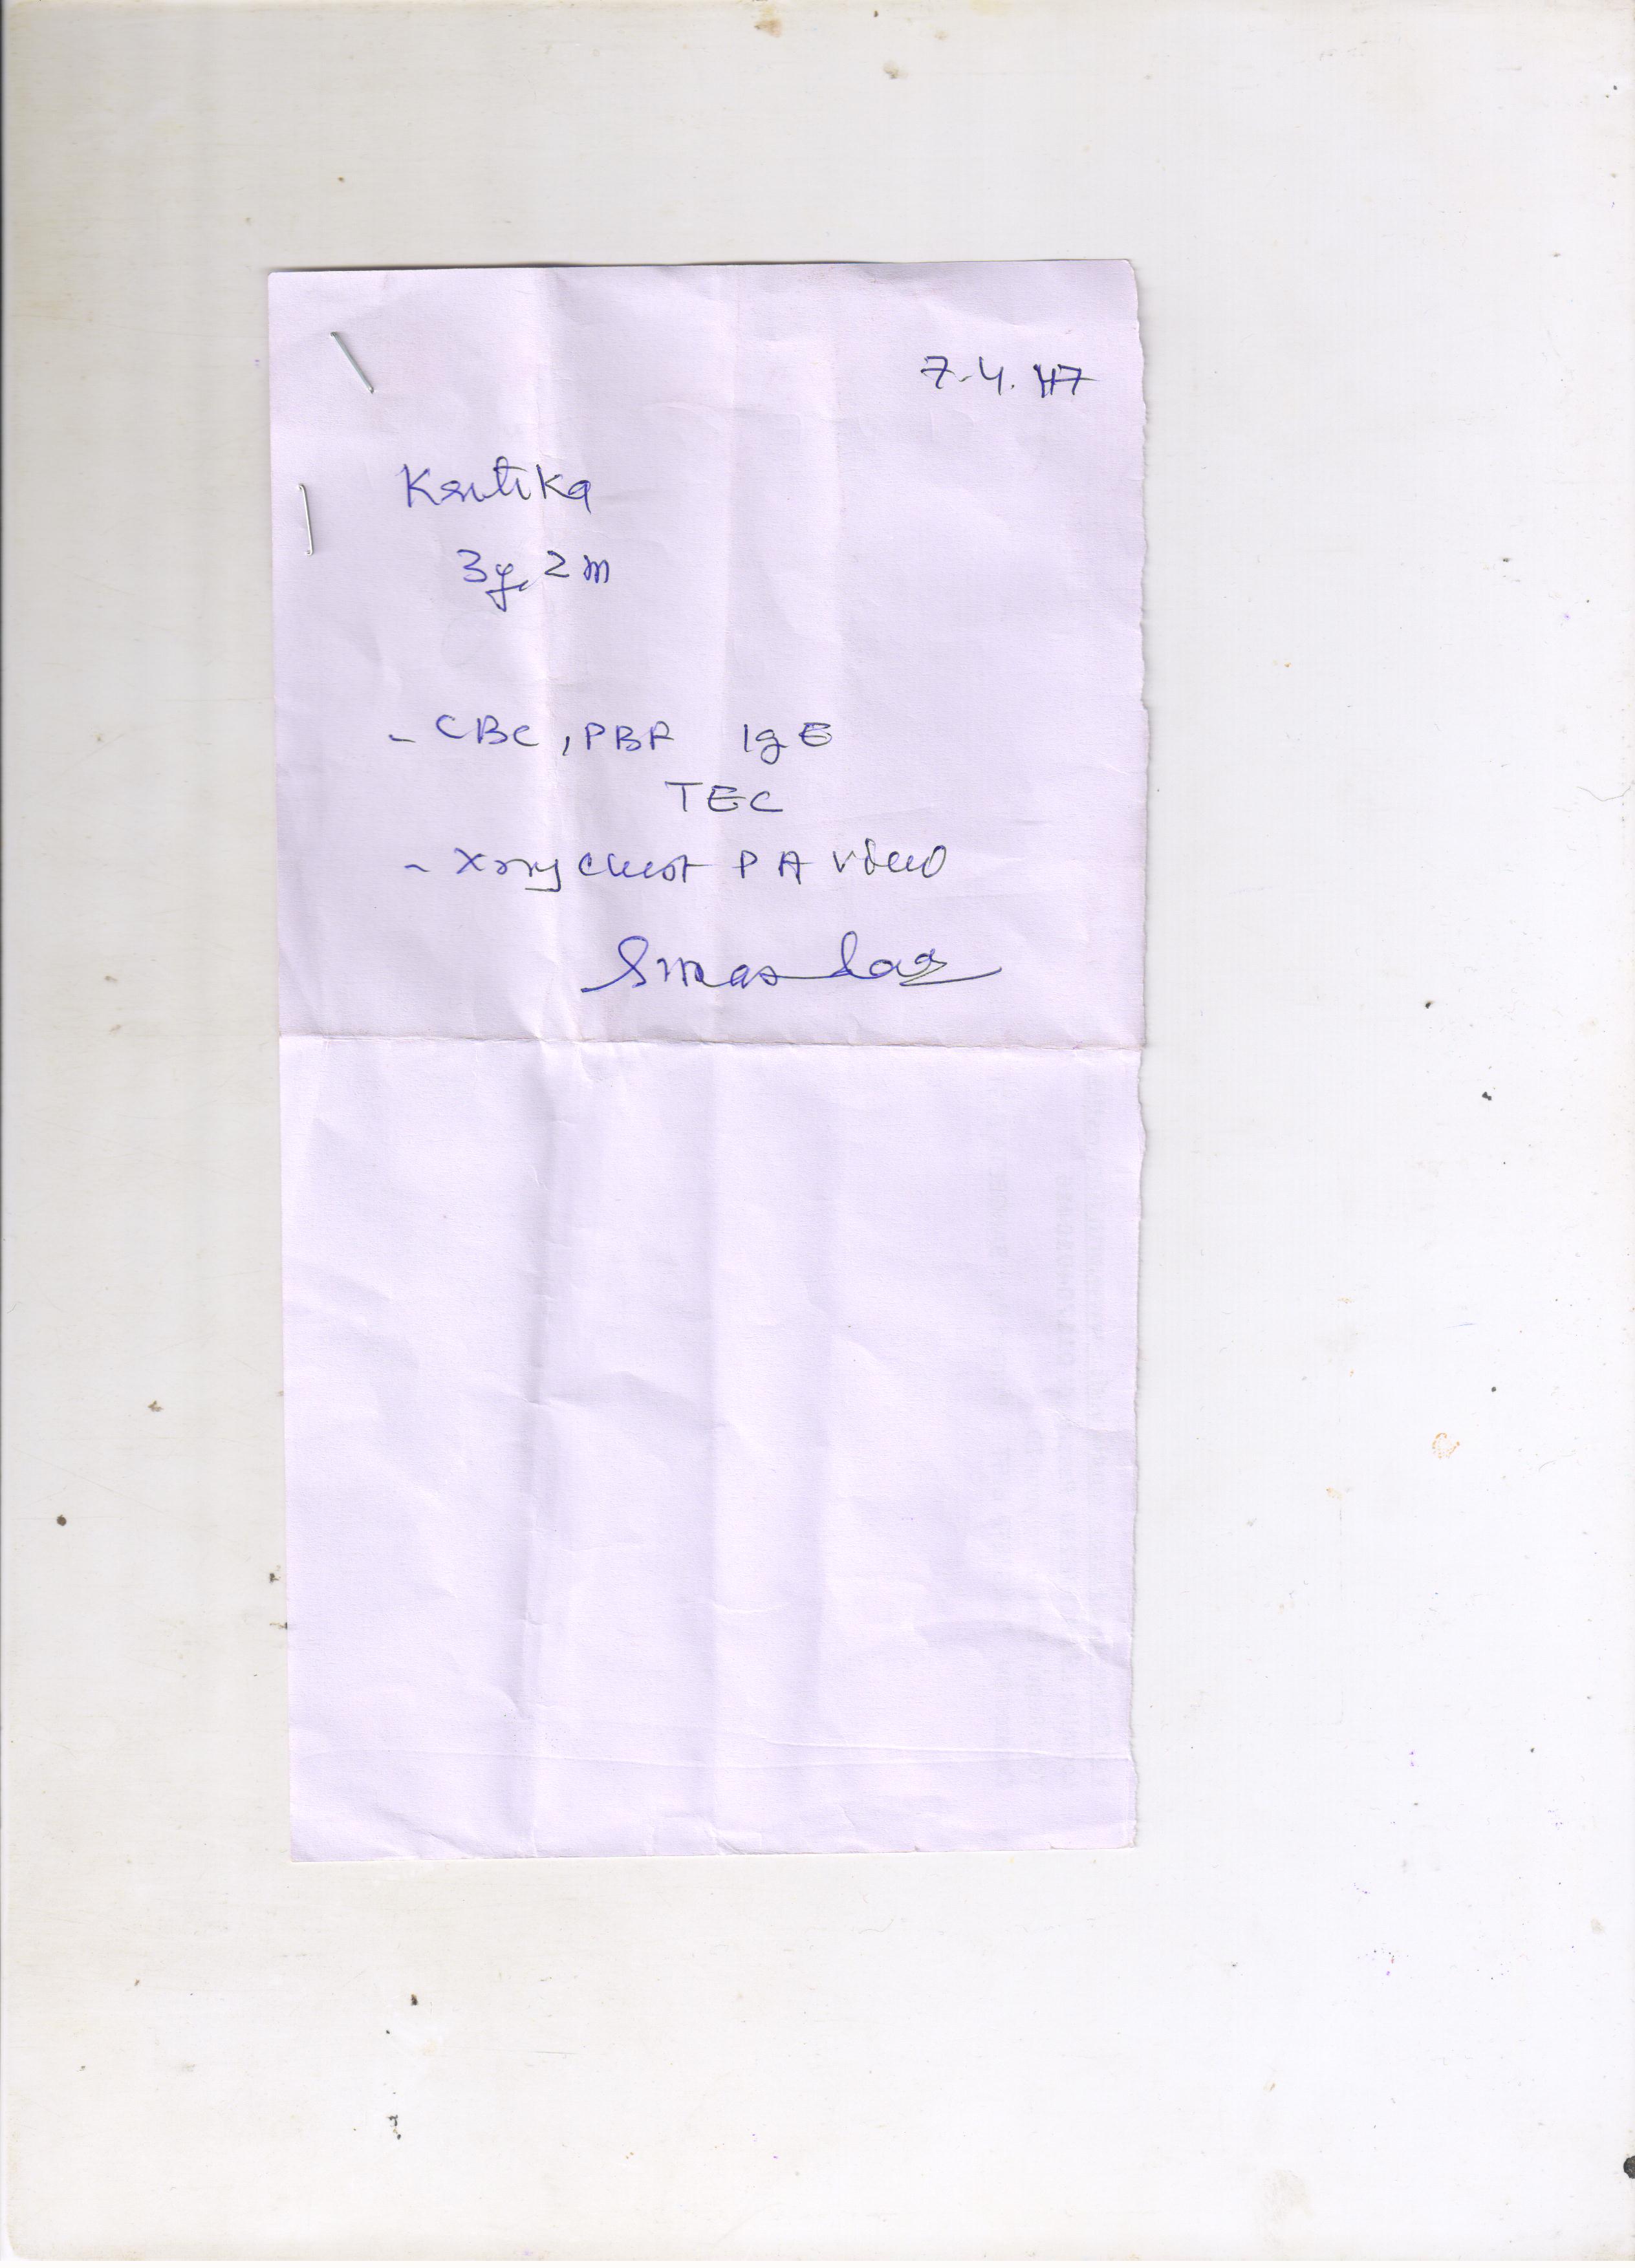 7.4.17
Kritika
3y, 2m
- CBC, PBF IgE
TEC
- Xray Chest PA view